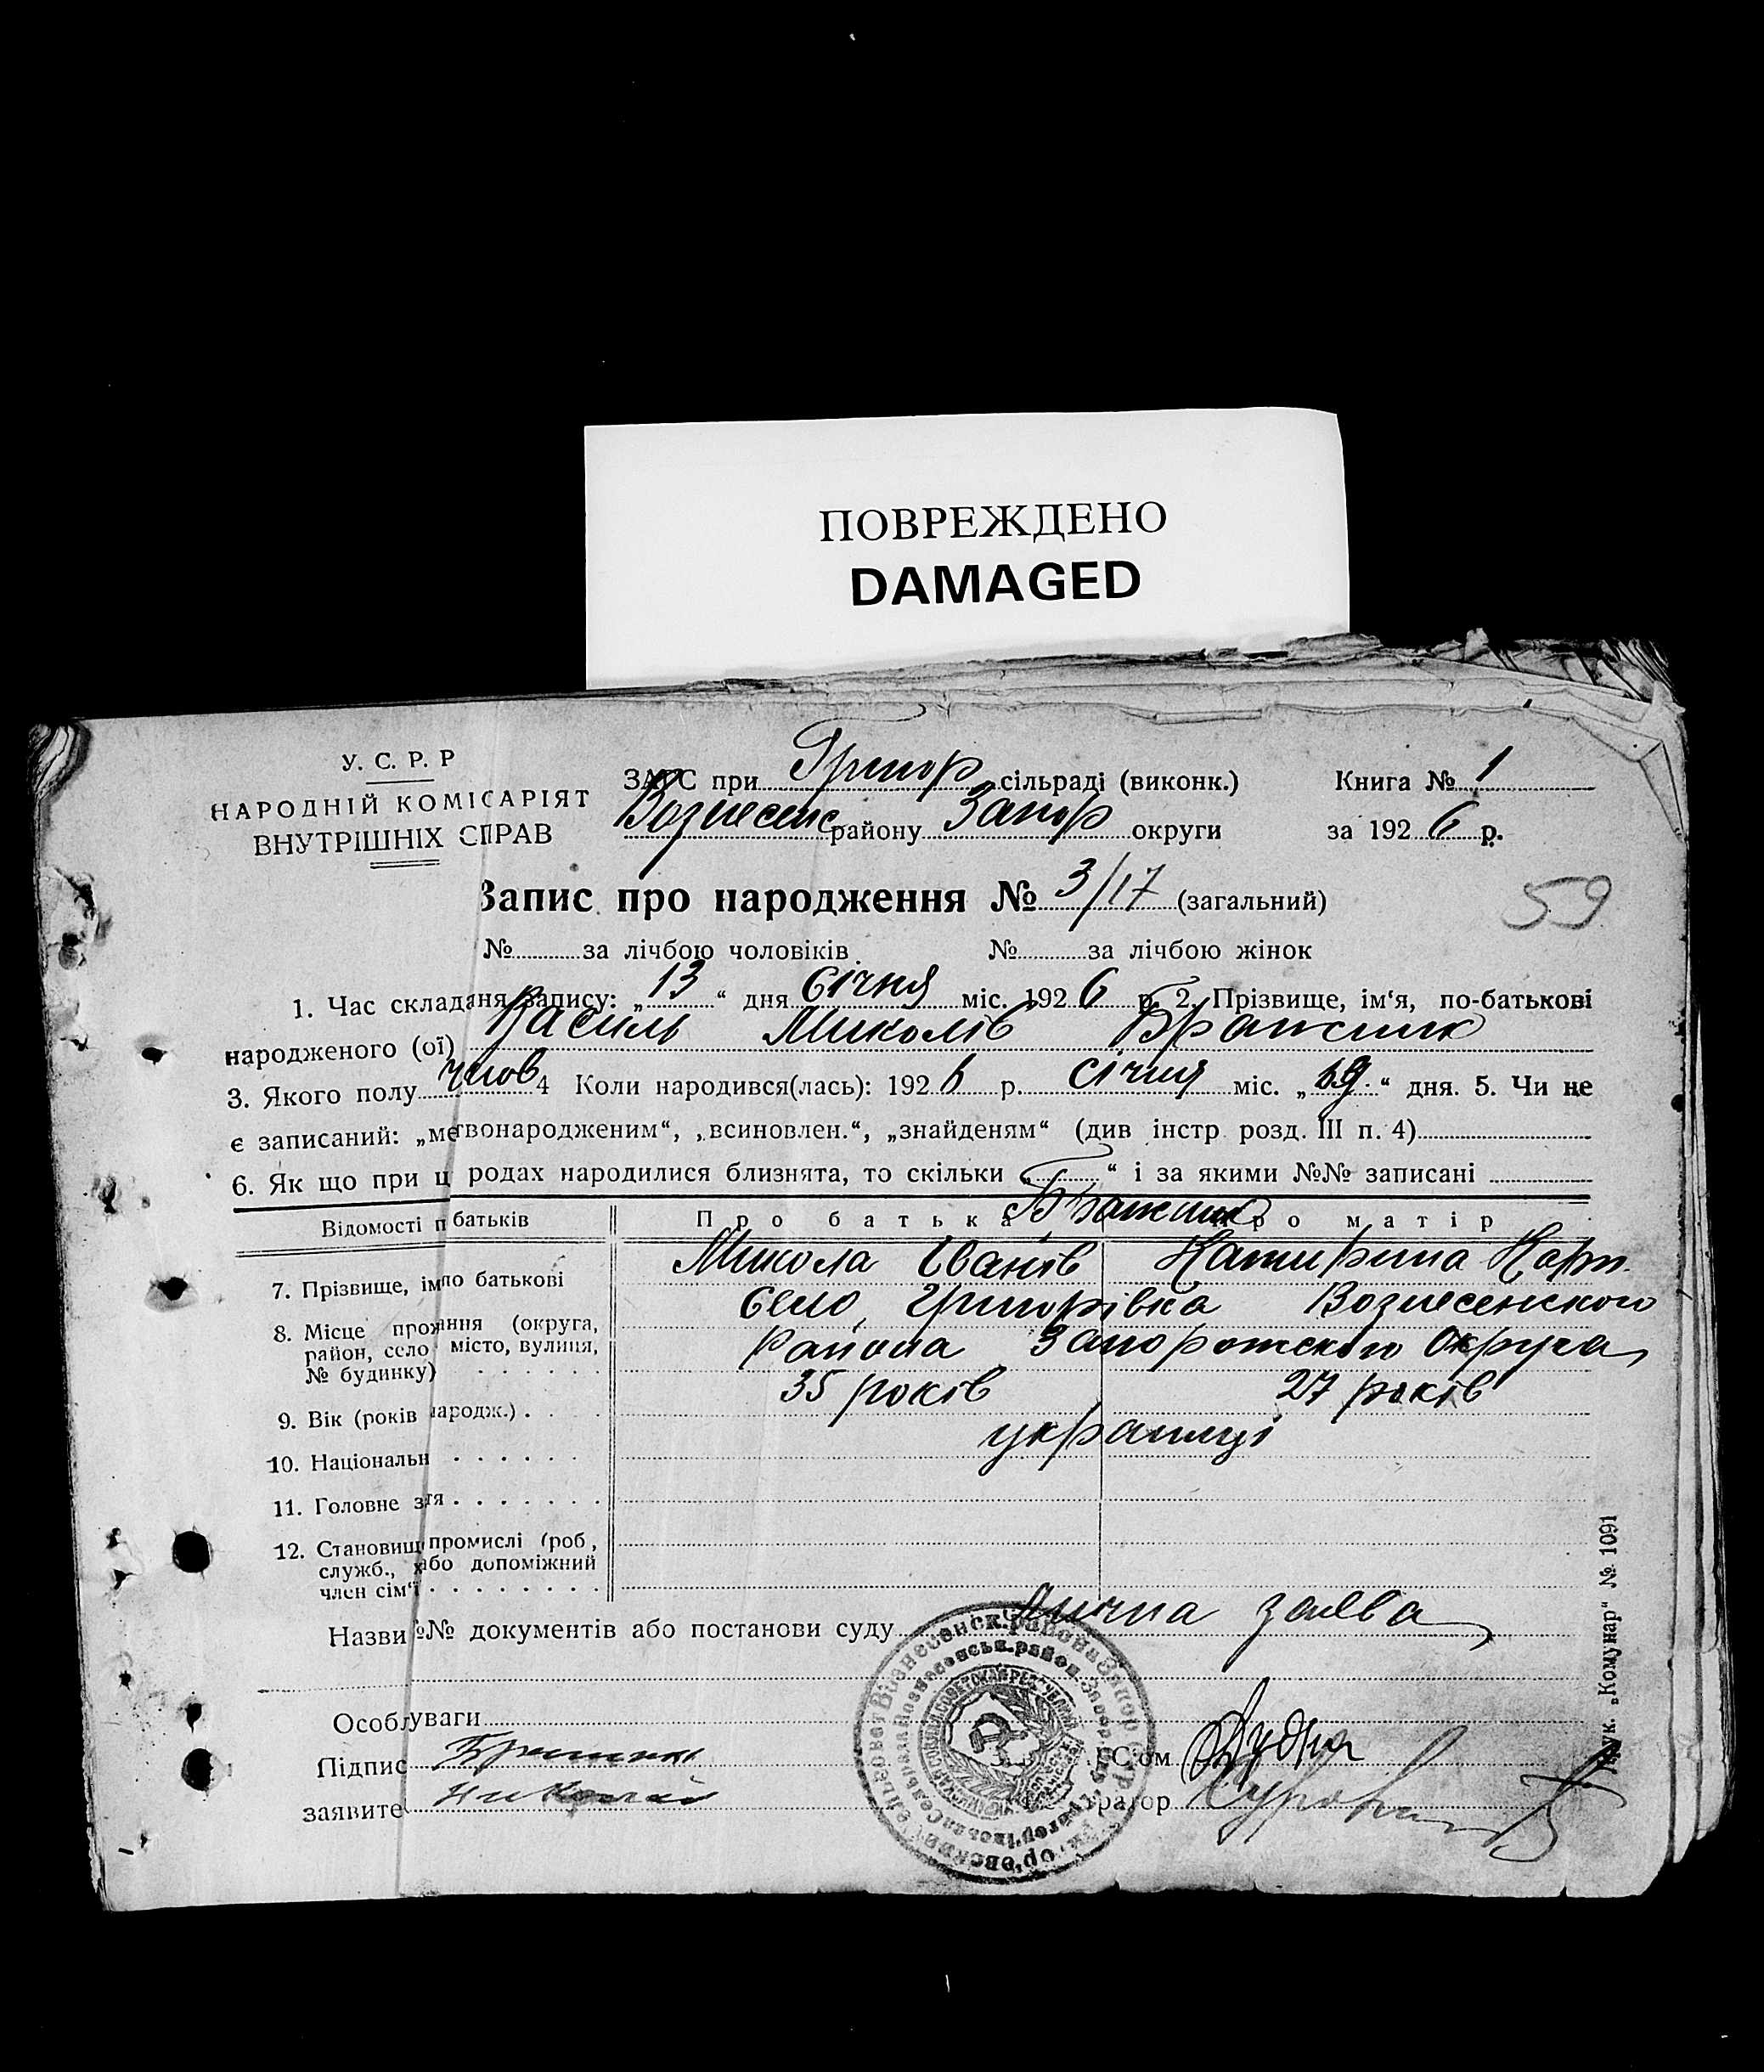 ПОВРЕЖДЕНО
DAMAGED
У. С. Р. Р
НАРОДНІЙ КОМІСАРІЯТ
ВНУТРІШНІХ СПРАВ
ЗАГС при Григор сільраді (виконк.) Книга № 1
Вознесенс району Запор округи за 1926 р.
Запис про народження № 3/17 (загальний)
59
№ за лічбою чоловіків. № за лічбою жінок
1. Час складаня запису: „13“ дня Січня міс. 1926 р. 2. Прізвище, ім‘я, по-батькові
народженого (ої) Василь Миколів Бражник
3. Якого полу чолов 4 Коли народився(лась): 1926 р. Січня міс. „ “ дня. 5. Чи не
є записаний: „мертвонародженим“, „всиновлен.“, „знайденям“ (див інстр розд. III п. 4)
6. Як що при ц родах народилися близнята, то скільки „ “ і за якими №№ записані
Відомості п батьків Про батька Про матір
Бражник
7. Прізвище, ім по батькові Микола Іванів Катирина Карп.
8. Місце прожання (округа, Село Григорівка Вознесенского
район, село місто, вулиця, Района Запорожского Округа
№ будинку)
9. Вік (років народж.) 35 років 27 років
10. Національн українці
11. Головне з тя
12. Становищ промислі (роб,
служб., х або допоміжний
член сім‘ї
Назви №№ документів або постанови суду Лична заява
Особ уваги
Підпис Бражник
заявите Николай
ГС‘ом Дудка
тратор
Друк. „Комунар“ № 1091